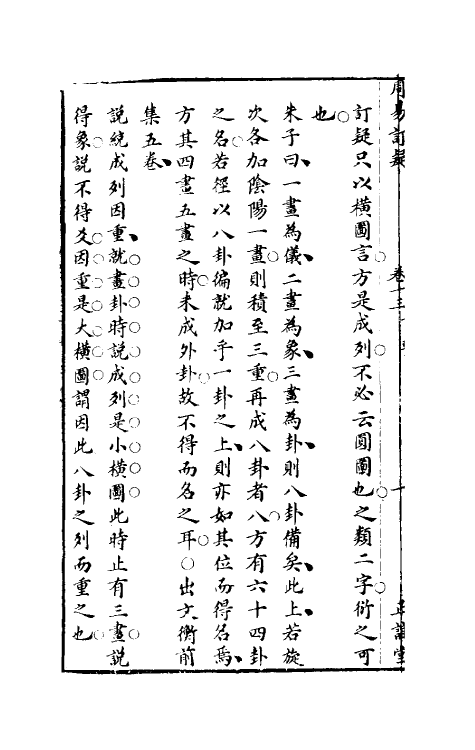 周易訂疑　卷十三　十　正誼堂
訂疑只以橫圖言方是成列不必云圓圖也之類二字衍之可
也
朱子曰一畫為儀二畫為象三畫為卦則八卦備矣此上若旋
次各加陰陽一畫則積至三重再成八卦者八方有六十四卦
之名若徑以八卦徧就加乎一卦之上則亦如其位而得名焉
方其四畫五畫之時未成外卦故不得而名之耳○出文衡前
集五卷
說繞成列因重就畫卦時說成列是小橫圖此時止有三畫說
得象說不得爻因重是大橫圖謂因此八卦之列而重之也